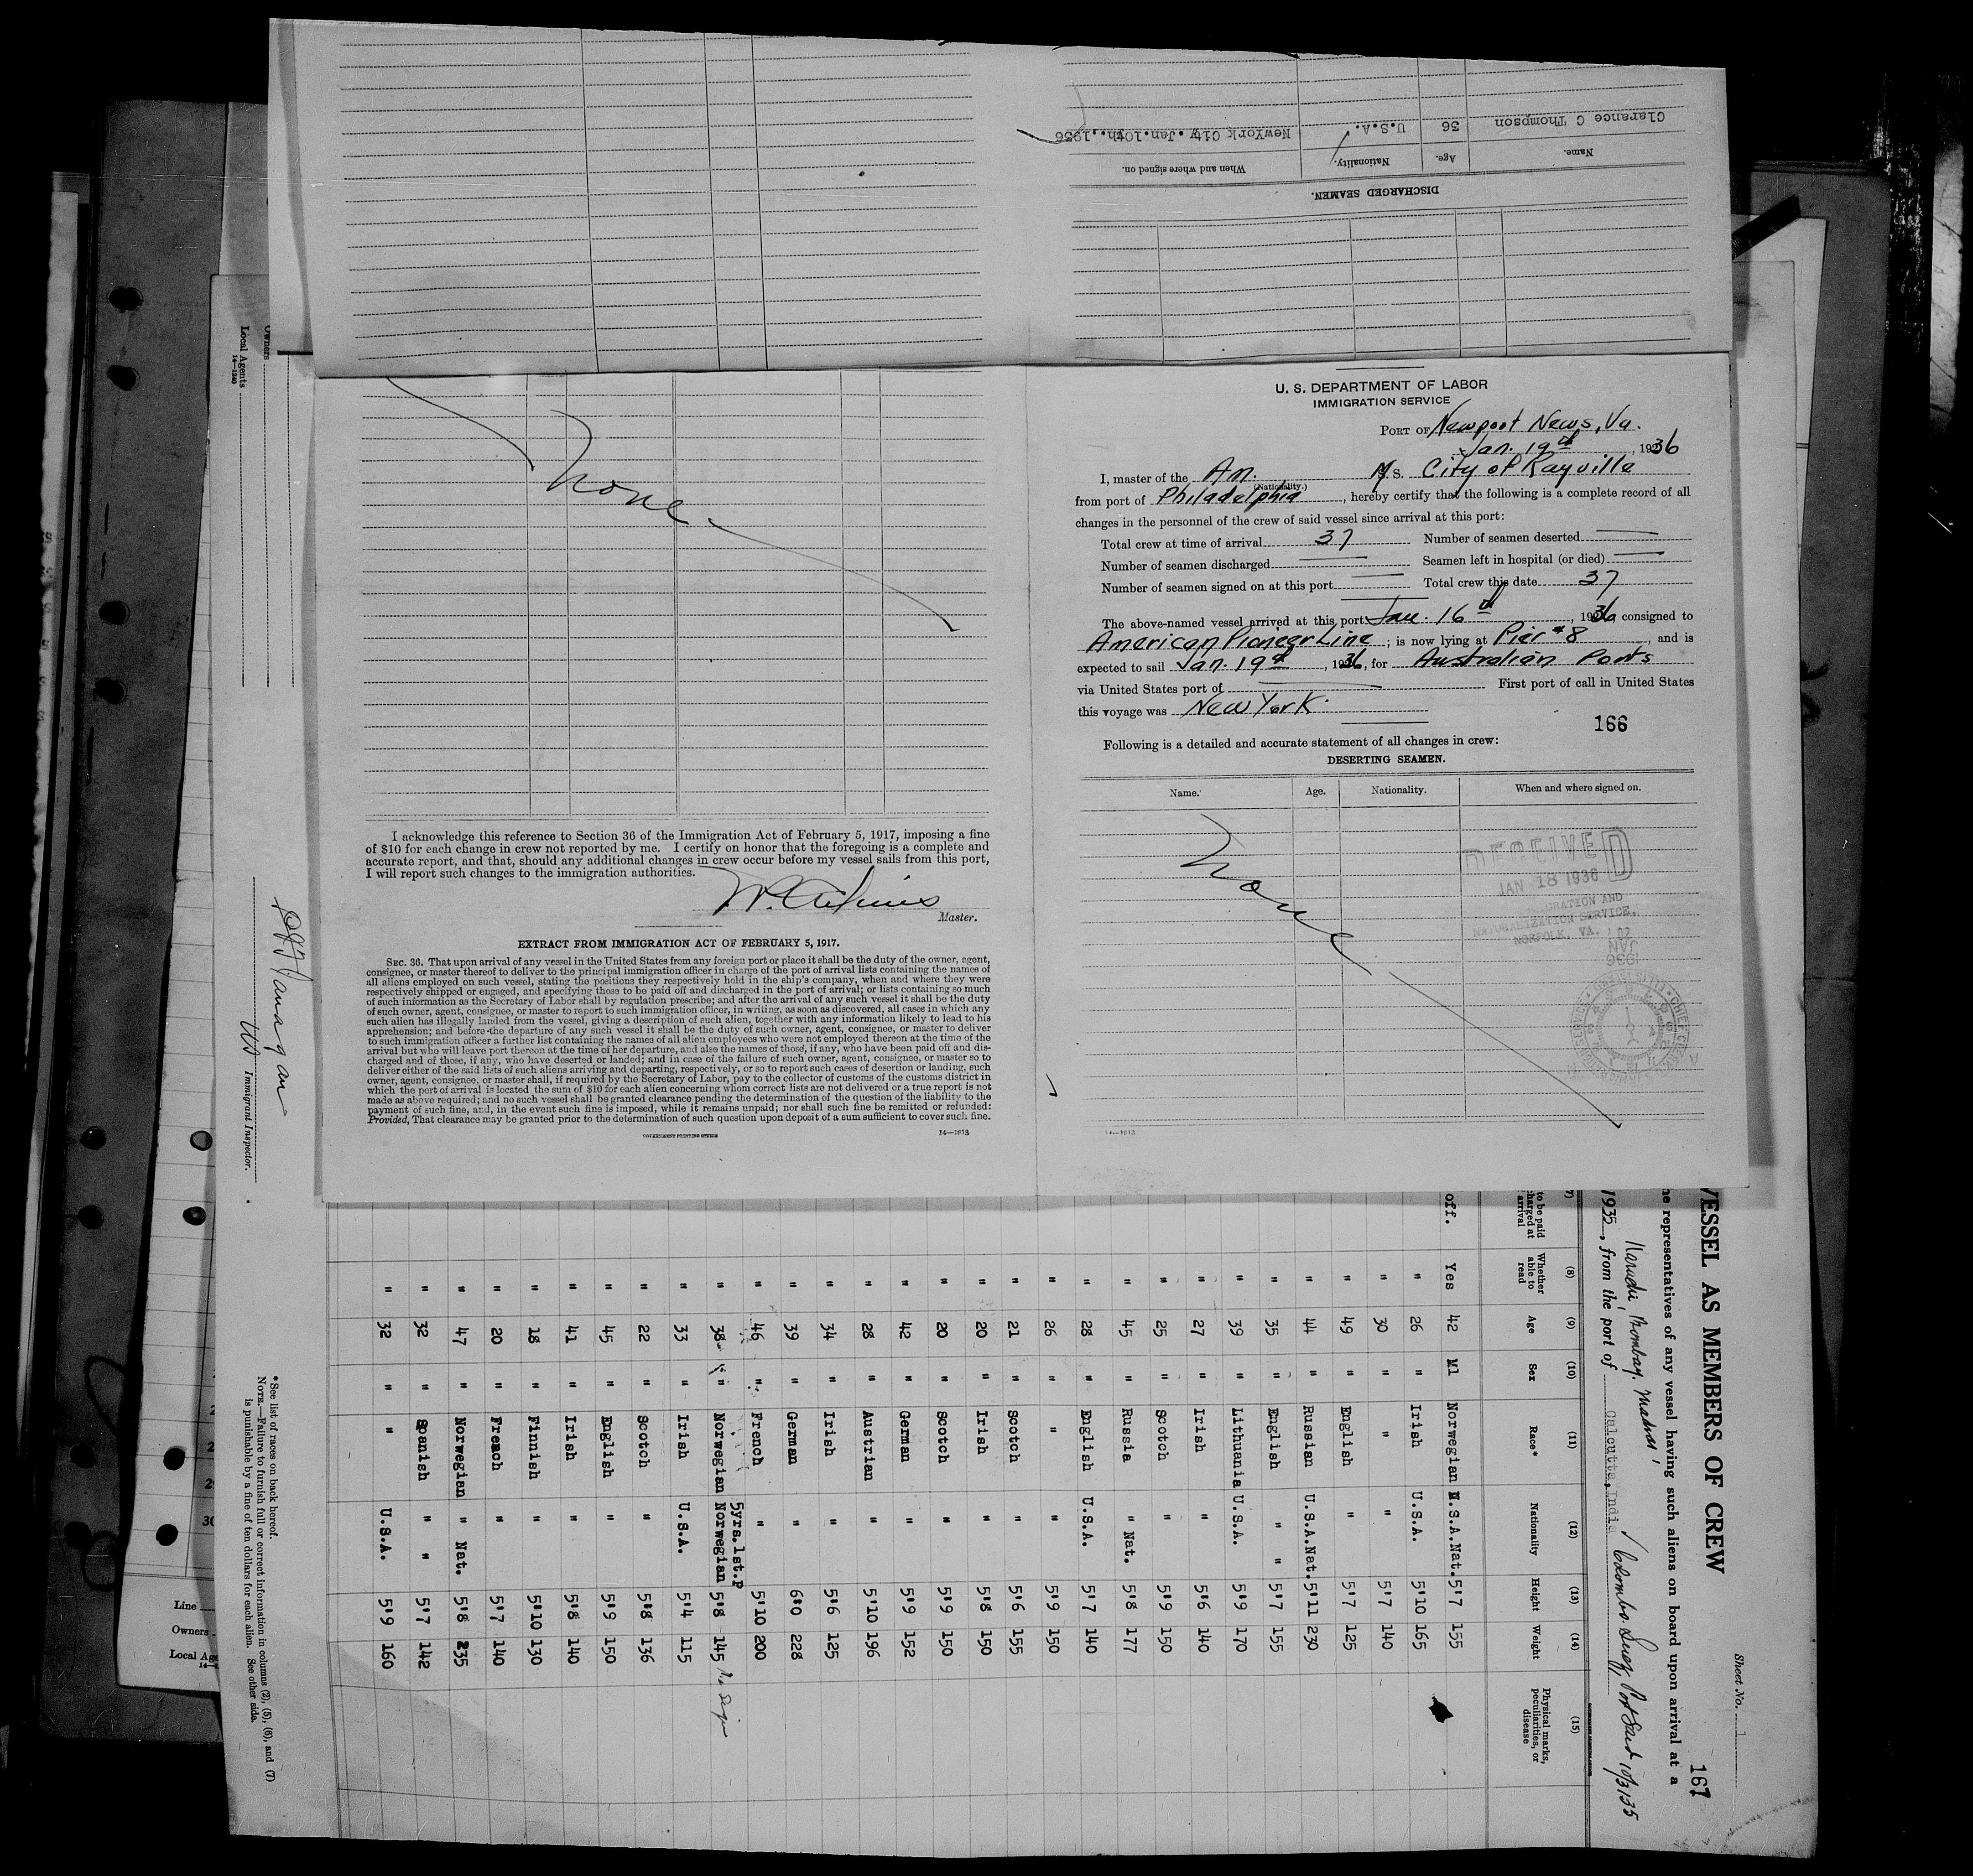 Clarance C Thompson 36 U.S.A. NewYork City.Jan.10th.,1936
Name. Age. Nationality. When and where signed on.
DISCHARGED SEAMEN.
U. S. DEPARTMENT OF LABOR
IMMIGRATION SERVICE
PORT OF Newport News, Va.
Jan. 19th, 1936
I, master of the Am. M S. City of Rayville
(Nationality.)
from port of Philadelphia, hereby certify that the following is a complete record of all
changes in the personnel of the crew of said vessel since arrival at this port:
Total crew at time of arrival 37 Number of seamen deserted —
Number of seamen discharged — Seamen left in hospital (or died) —
Number of seamen signed on at this port — Total crew this date 37
The above-named vessel arrived at this port Jan. 16th, 1936 consigned to
American Pioneer Line; is now lying at Pier #8, and is
expected to sail Jan. 19th, 1936, for Australian Ports
via United States port of — First port of call in United States
this voyage was New York.
166
Following is a detailed and accurate statement of all changes in crew:
DESERTING SEAMEN.
Name. Age. Nationality. When and where signed on.
None
RECEIVED
JAN 18 1936
IMMIGRATION AND
NATURALIZATION SERVICE,
NORFOLK, VA.
14—1613
None
I acknowledge this reference to Section 36 of the Immigration Act of February 5, 1917, imposing a fine
of $10 for each change in crew not reported by me. I certify on honor that the foregoing is a complete and
accurate report, and that, should any additional changes in crew occur before my vessel sails from this port,
I will report such changes to the immigration authorities.
Master.
EXTRACT FROM IMMIGRATION ACT OF FEBRUARY 5, 1917.
SEC. 36. That upon arrival of any vessel in the United States from any foreign port or place it shall be the duty of the owner, agent,
consignee, or master thereof to deliver to the principal immigration officer in charge of the port of arrival lists containing the names of
all aliens employed on such vessel, stating the positions they respectively hold in the ship's company, when and where they were
respectively shipped or engaged, and specifying those to be paid off and discharged in the port of arrival; or lists containing so much
of such information as the Secretary of Labor shall by regulation prescribe; and after the arrival of any such vessel it shall be the duty
of such owner, agent, consignee, or master to report to such immigration officer, in writing, as soon as discovered, all cases in which any
such alien has illegally landed from the vessel, giving a description of such alien, together with any information likely to lead to his
apprehension; and before the departure of any such vessel it shall be the duty of such owner, agent, consignee, or master to deliver
to such immigration officer a further list containing the names of all alien employees who were not employed thereon at the time of the
arrival but who will leave port thereon at the time of her departure, and also the names of those, if any, who have been paid off and dis-
charged and of those, if any, who have deserted or landed; and in case of the failure of such owner, agent, consignee, or master so to
deliver either of the said lists of such aliens arriving and departing, respectively, or so to report such cases of desertion or landing, such
owner, agent, consignee, or master shall, if required by the Secretary of Labor, pay to the collector of customs of the customs district in
which the port of arrival is located the sum of $10 for each alien concerning whom correct lists are not delivered or a true report is not
made as above required; and no such vessel shall be granted clearance pending the determination of the question of the liability to the
payment of such fine, and, in the event such fine is imposed, while it remains unpaid; nor shall such fine be remitted or refunded:
Provided, That clearance may be granted prior to the determination of such question upon deposit of a sum sufficient to cover such fine.
GOVERNMENT PRINTING OFFICE 14—1613
Sheet No. 1
167
VESSEL AS MEMBERS OF CREW
representatives of any vessel having such aliens on board upon arrival at a
Karachi, Bombay, Madras,
1935, from the port of Calcutta, India / Colombo. Suez, Port Said 10/31/35
(8) (9) (10) (11) (12) (13) (14) (15)
to be paid
arrival
Whether able to read Age Sex Race* Nationality Height Weight Physical marks, peculiarities, or disease
off. Yes 42 Ml Norwegian U.S.A.Nat. 5'7 155
" 26 " Irish U.S.A. 5'10 165
" 30 " " " 5'7 140
" 49 " English " 5'7 125
" 44 " Russian U.S.A.Nat. 5'11 230
" 35 " English " " 5'7 155
" 39 " Lithuania U.S.A. 5'9 170
" 27 " Irish " 5'6 140
" 25 " Scotch " 5'9 150
" 45 " Russia " Nat. 5'8 177
" 28 " English U.S.A. 5'7 140
" 26 " " " 5'9 150
" 21 " Scotch " 5'6 155
" 20 " Irish " 5'8 150
" 20 " Scotch " 5'9 150
" 42 " German " 5'9 152
" 28 " Austrian " 5'10 196
" 34 " Irish " 5'6 125
" 39 " German " 6'0 228
" 46 " French " 5'10 200
5yrs.1st.P
" 38 " Norwegian Norwegian 5'8 145
" 33 " Irish U.S.A. 5'4 115
" 22 " Scotch " 5'8 136
" 45 " English " 5'9 150
" 41 " Irish " 5'8 140
" 18 " Finnish " 5'10 130
" 20 " French " 5'7 140
" 47 " Norwegian " Nat. 5'8 235
" 32 " Spanish " " 5'7 142
" 32 " " U.S.A. 5'9 160
* See list of races on back hereof.
NOTE.—Failure to furnish full or correct information in columns (2), (5), (6), and (7)
is punishable by a fine of ten dollars for each alien. See other side.
Immigrant Inspector.
Owners
Local Agents
14—1240
Line
Owners
30